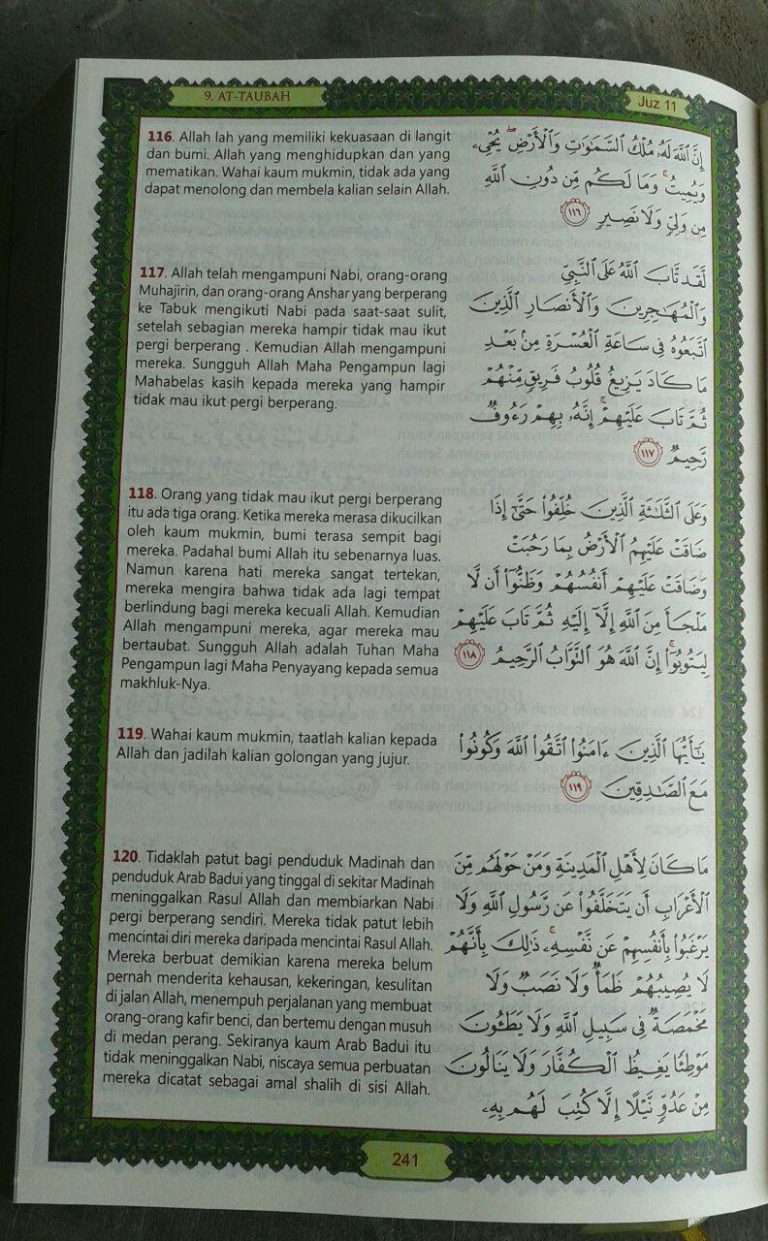 9. AT-TAUBAH
Juz 11
116. Allah lah yang memiliki kekuasaan di langit
dan bumi. Allah yang menghidupkan dan yang
mematikan. Wahai kaum mukmin, tidak ada yang
dapat menolong dan membela kalian selain Allah.
إِنَّ ٱللَّهَ لَهُۥ مُلْكُ ٱلسَّمَٰوَٰتِ وَٱلْأَرْضِۖ يُحْىِۦ
وَيُمِيتُۚ وَمَا لَكُم مِّن دُونِ ٱللَّهِ
مِن وَلِىٍّ وَلَا نَصِيرٍ ١١٦
117. Allah telah mengampuni Nabi, orang-orang
Muhajirin, dan orang-orang Anshar yang berperang
ke Tabuk mengikuti Nabi pada saat-saat sulit,
setelah sebagian mereka hampir tidak mau ikut
pergi berperang . Kemudian Allah mengampuni
mereka. Sungguh Allah Maha Pengampun lagi
Mahabelas kasih kepada mereka yang hampir
tidak mau ikut pergi berperang.
لَّقَد تَّابَ ٱللَّهُ عَلَى ٱلنَّبِىِّ
وَٱلْمُهَٰجِرِينَ وَٱلْأَنصَارِ ٱلَّذِينَ
ٱتَّبَعُوهُ فِى سَاعَةِ ٱلْعُسْرَةِ مِنۢ بَعْدِ
مَا كَادَ يَزِيغُ قُلُوبُ فَرِيقٍ مِّنْهُمْ
ثُمَّ تَابَ عَلَيْهِمْۚ إِنَّهُۥ بِهِمْ رَءُوفٌ
رَّحِيمٌ ١١٧
118. Orang yang tidak mau ikut pergi berperang
itu ada tiga orang. Ketika mereka merasa dikucilkan
oleh kaum mukmin, bumi terasa sempit bagi
mereka. Padahal bumi Allah itu sebenarnya luas.
Namun karena hati mereka sangat tertekan,
mereka mengira bahwa tidak ada lagi tempat
berlindung bagi mereka kecuali Allah. Kemudian
Allah mengampuni mereka, agar mereka mau
bertaubat. Sungguh Allah adalah Tuhan Maha
Pengampun lagi Maha Penyayang kepada semua
makhluk-Nya.
وَعَلَى ٱلثَّلَٰثَةِ ٱلَّذِينَ خُلِّفُوا۟ حَتَّىٰٓ إِذَا
ضَاقَتْ عَلَيْهِمُ ٱلْأَرْضُ بِمَا رَحُبَتْ
وَضَاقَتْ عَلَيْهِمْ أَنفُسُهُمْ وَظَنُّوٓا۟ أَن لَّا
مَلْجَأَ مِنَ ٱللَّهِ إِلَّآ إِلَيْهِ ثُمَّ تَابَ عَلَيْهِمْ
لِيَتُوبُوٓا۟ۚ إِنَّ ٱللَّهَ هُوَ ٱلتَّوَّابُ ٱلرَّحِيمُ ١١٨
119. Wahai kaum mukmin, taatlah kalian kepada
Allah dan jadilah kalian golongan yang jujur.
يَٰٓأَيُّهَا ٱلَّذِينَ ءَامَنُوا۟ ٱتَّقُوا۟ ٱللَّهَ وَكُونُوا۟
مَعَ ٱلصَّٰدِقِينَ ١١٩
120. Tidaklah patut bagi penduduk Madinah dan
penduduk Arab Badui yang tinggal di sekitar Madinah
meninggalkan Rasul Allah dan membiarkan Nabi
pergi berperang sendiri. Mereka tidak patut lebih
mencintai diri mereka daripada mencintai Rasul Allah.
Mereka berbuat demikian karena mereka belum
pernah menderita kehausan, kekeringan, kesulitan
di jalan Allah, menempuh perjalanan yang membuat
orang-orang kafir benci, dan bertemu dengan musuh
di medan perang. Sekiranya kaum Arab Badui itu
tidak meninggalkan Nabi, niscaya semua perbuatan
mereka dicatat sebagai amal shalih di sisi Allah.
مَا كَانَ لِأَهْلِ ٱلْمَدِينَةِ وَمَنْ حَوْلَهُم مِّنَ
ٱلْأَعْرَابِ أَن يَتَخَلَّفُوا۟ عَن رَّسُولِ ٱللَّهِ وَلَا
يَرْغَبُوا۟ بِأَنفُسِهِمْ عَن نَّفْسِهِۦۚ ذَٰلِكَ بِأَنَّهُمْ
لَا يُصِيبُهُمْ ظَمَأٌ وَلَا نَصَبٌ وَلَا
مَخْمَصَةٌ فِى سَبِيلِ ٱللَّهِ وَلَا يَطَـُٔونَ
مَوْطِئًا يَغِيظُ ٱلْكُفَّارَ وَلَا يَنَالُونَ
مِنْ عَدُوٍّ نَّيْلًا إِلَّا كُتِبَ لَهُم بِهِۦ
241